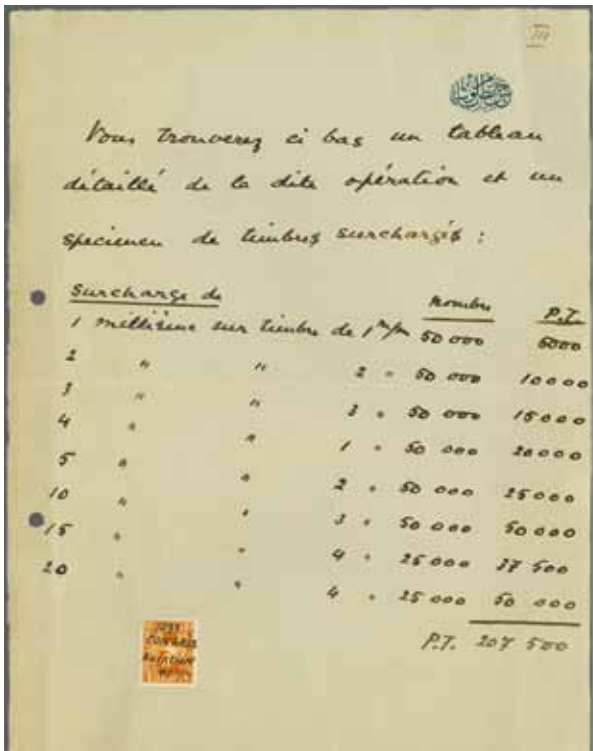 III
Vous trouverez ci bas un tableau
détaillé de la dite opération et un
specimen de timbres surchargés :
Surcharge de nombre P.T.
1 millième sur timbre de 1 m/m 50 000 5000
2 " " 2 " 50 000 10000
3 " " 3 " 50 000 15000
4 " " 1 " 50 000 20000
5 " " 2 " 50 000 25000
10 " " 3 " 50 000 50000
15 " " 4 " 25000 37 500
20 " " 4 " 25000 50 000
P.T. 207 500